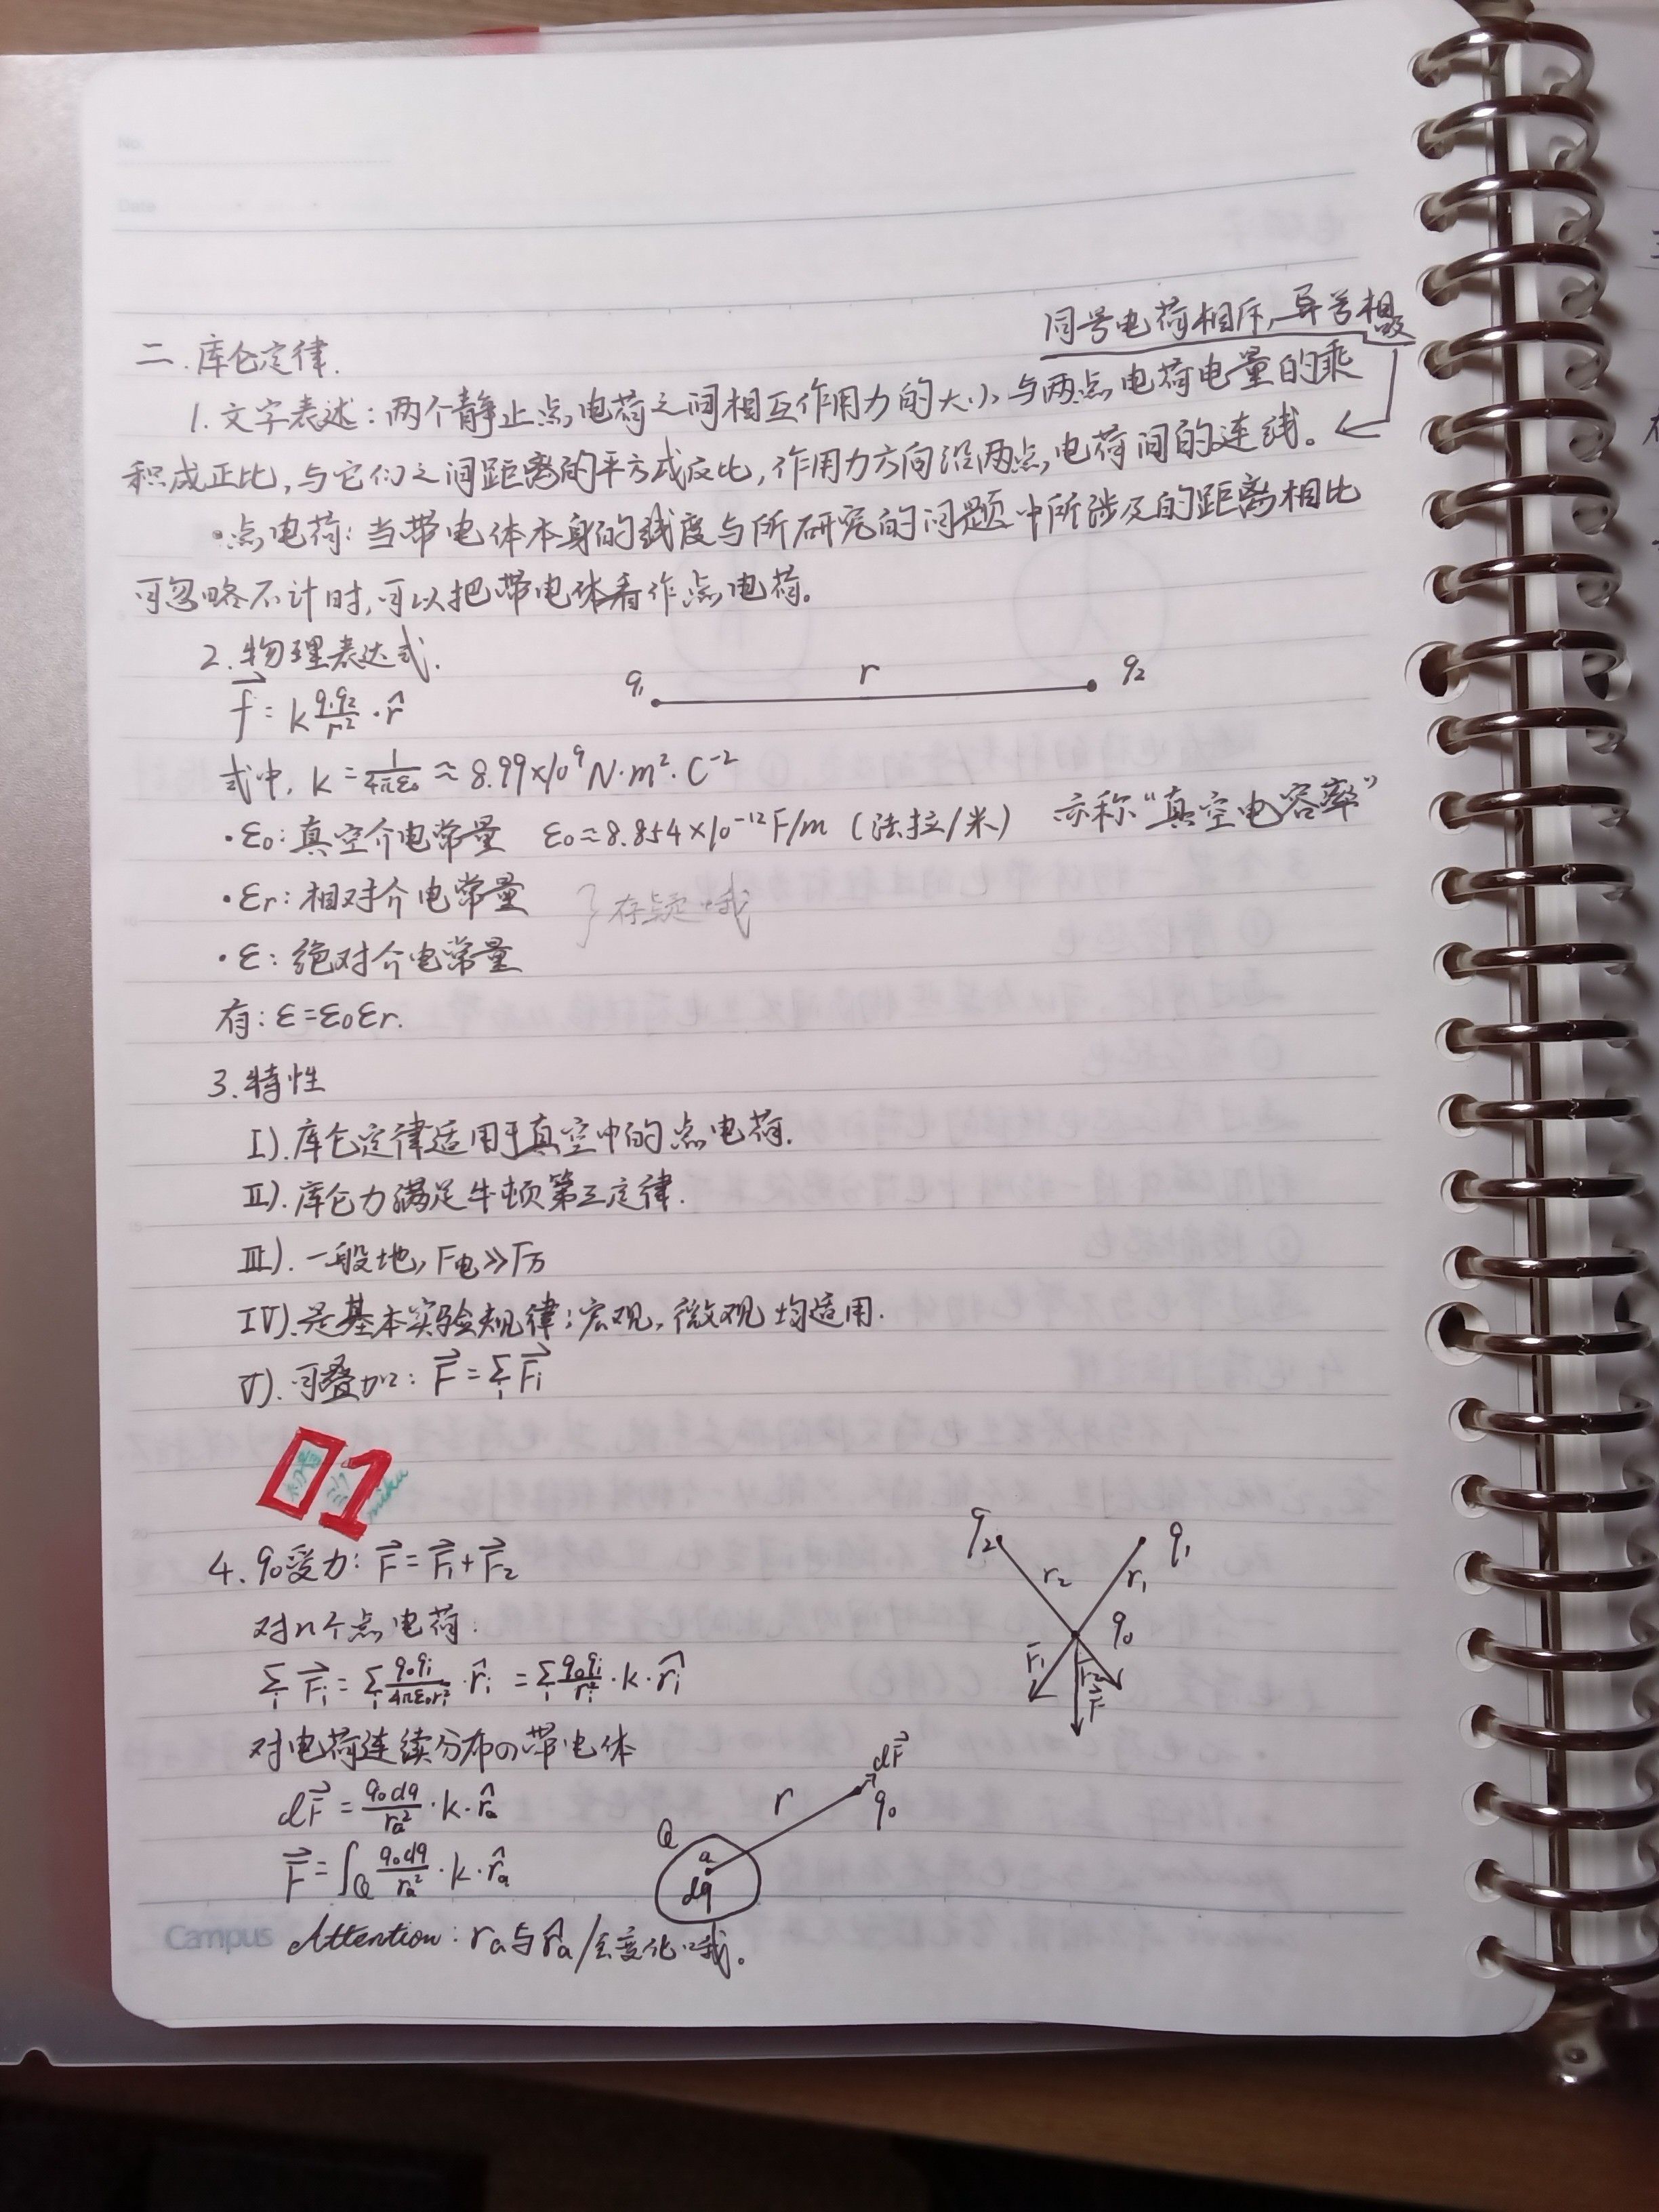 No.
Date
同号电荷相斥,异号相吸
二.库仑定律.
1.文字表述:两个静止点电荷之间相互作用力的大小与两点电荷电量的乘
积成正比,与它们之间距离的平方成反比,作用力方向沿两点电荷间的连线。
•点电荷:当带电体本身的线度与所研究的问题中所涉及的距离相比
可忽略不计时,可以把带电体看作点电荷。
2.物理表达式.
q₁ r q₂
f⃗ = k q₁q₂/r² · r̂
式中, k = 1/4πε₀ ≈ 8.99×10⁹ N·m²·C⁻²
•ε₀:真空介电常量 ε₀≈8.854×10⁻¹² F/m (法拉/米) 亦称“真空电容率”
•εr:相对介电常量
} 存疑哦
•ε:绝对介电常量
有:ε=ε₀εr.
3.特性
I).库仑定律适用于真空中的点电荷.
II).库仑力满足牛顿第三定律.
III).一般地,F电≫F万
IV).是基本实验规律;宏观,微观均适用.
V).可叠加: F⃗ = Σᵢ F⃗ᵢ
01
miku
q₂ q₁
r₂ r₁
q₀
F⃗₁ F⃗₂
F⃗
4.q₀受力: F⃗ = F⃗₁ + F⃗₂
对n个点电荷:
Σᵢ F⃗ᵢ = Σᵢ q₀qᵢ/4πε₀rᵢ² · r̂ᵢ = Σᵢ q₀qᵢ/rᵢ² · k · r̂ᵢ
对电荷连续分布の带电体
dF⃗ = q₀dq/rₐ² · k · r̂ₐ
F⃗ = ∫Q q₀dq/rₐ² · k · r̂ₐ
dF⃗
r q₀
Q
a
dq
Campus
Attention: rₐ与r̂ₐ会变化哦。